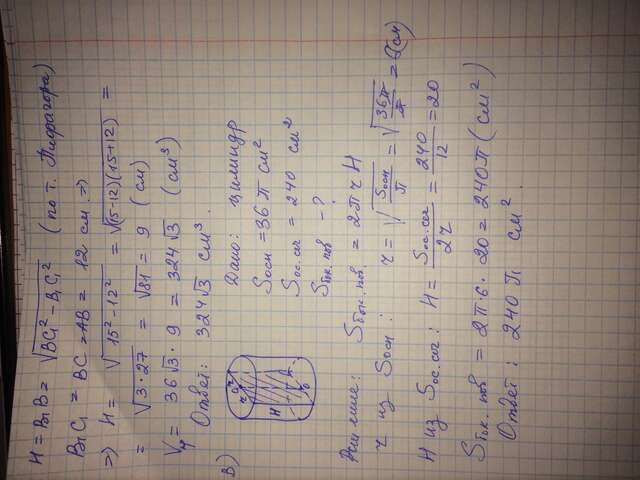 H = B₁B = √(BC₁² − B₁C₁²) (по т. Пифагора)
B₁C₁ = BC = AB = 12 см. ⇒
⇒ H = √(15² − 12²) = √((15−12)(15+12)) =
= √(3·27) = √81 = 9 (см)
V = 36√3 · 9 = 324√3 (см³)
Ответ: 324√3 см³.
В)
Дано: цилиндр
Sосн = 36π см²
Sос.сеч = 240 см²
Sбок.пов − ?
Решение: Sбок.пов. = 2πrH
r из Sосн: r = √(Sосн/π) = √(36π/π) = 6(см)
H из Sос.сеч: H = Sос.сеч/2r = 240/12 = 20
Sбок.пов = 2π·6·20 = 240π (см²)
Ответ: 240π см².
r
O
r
H
O